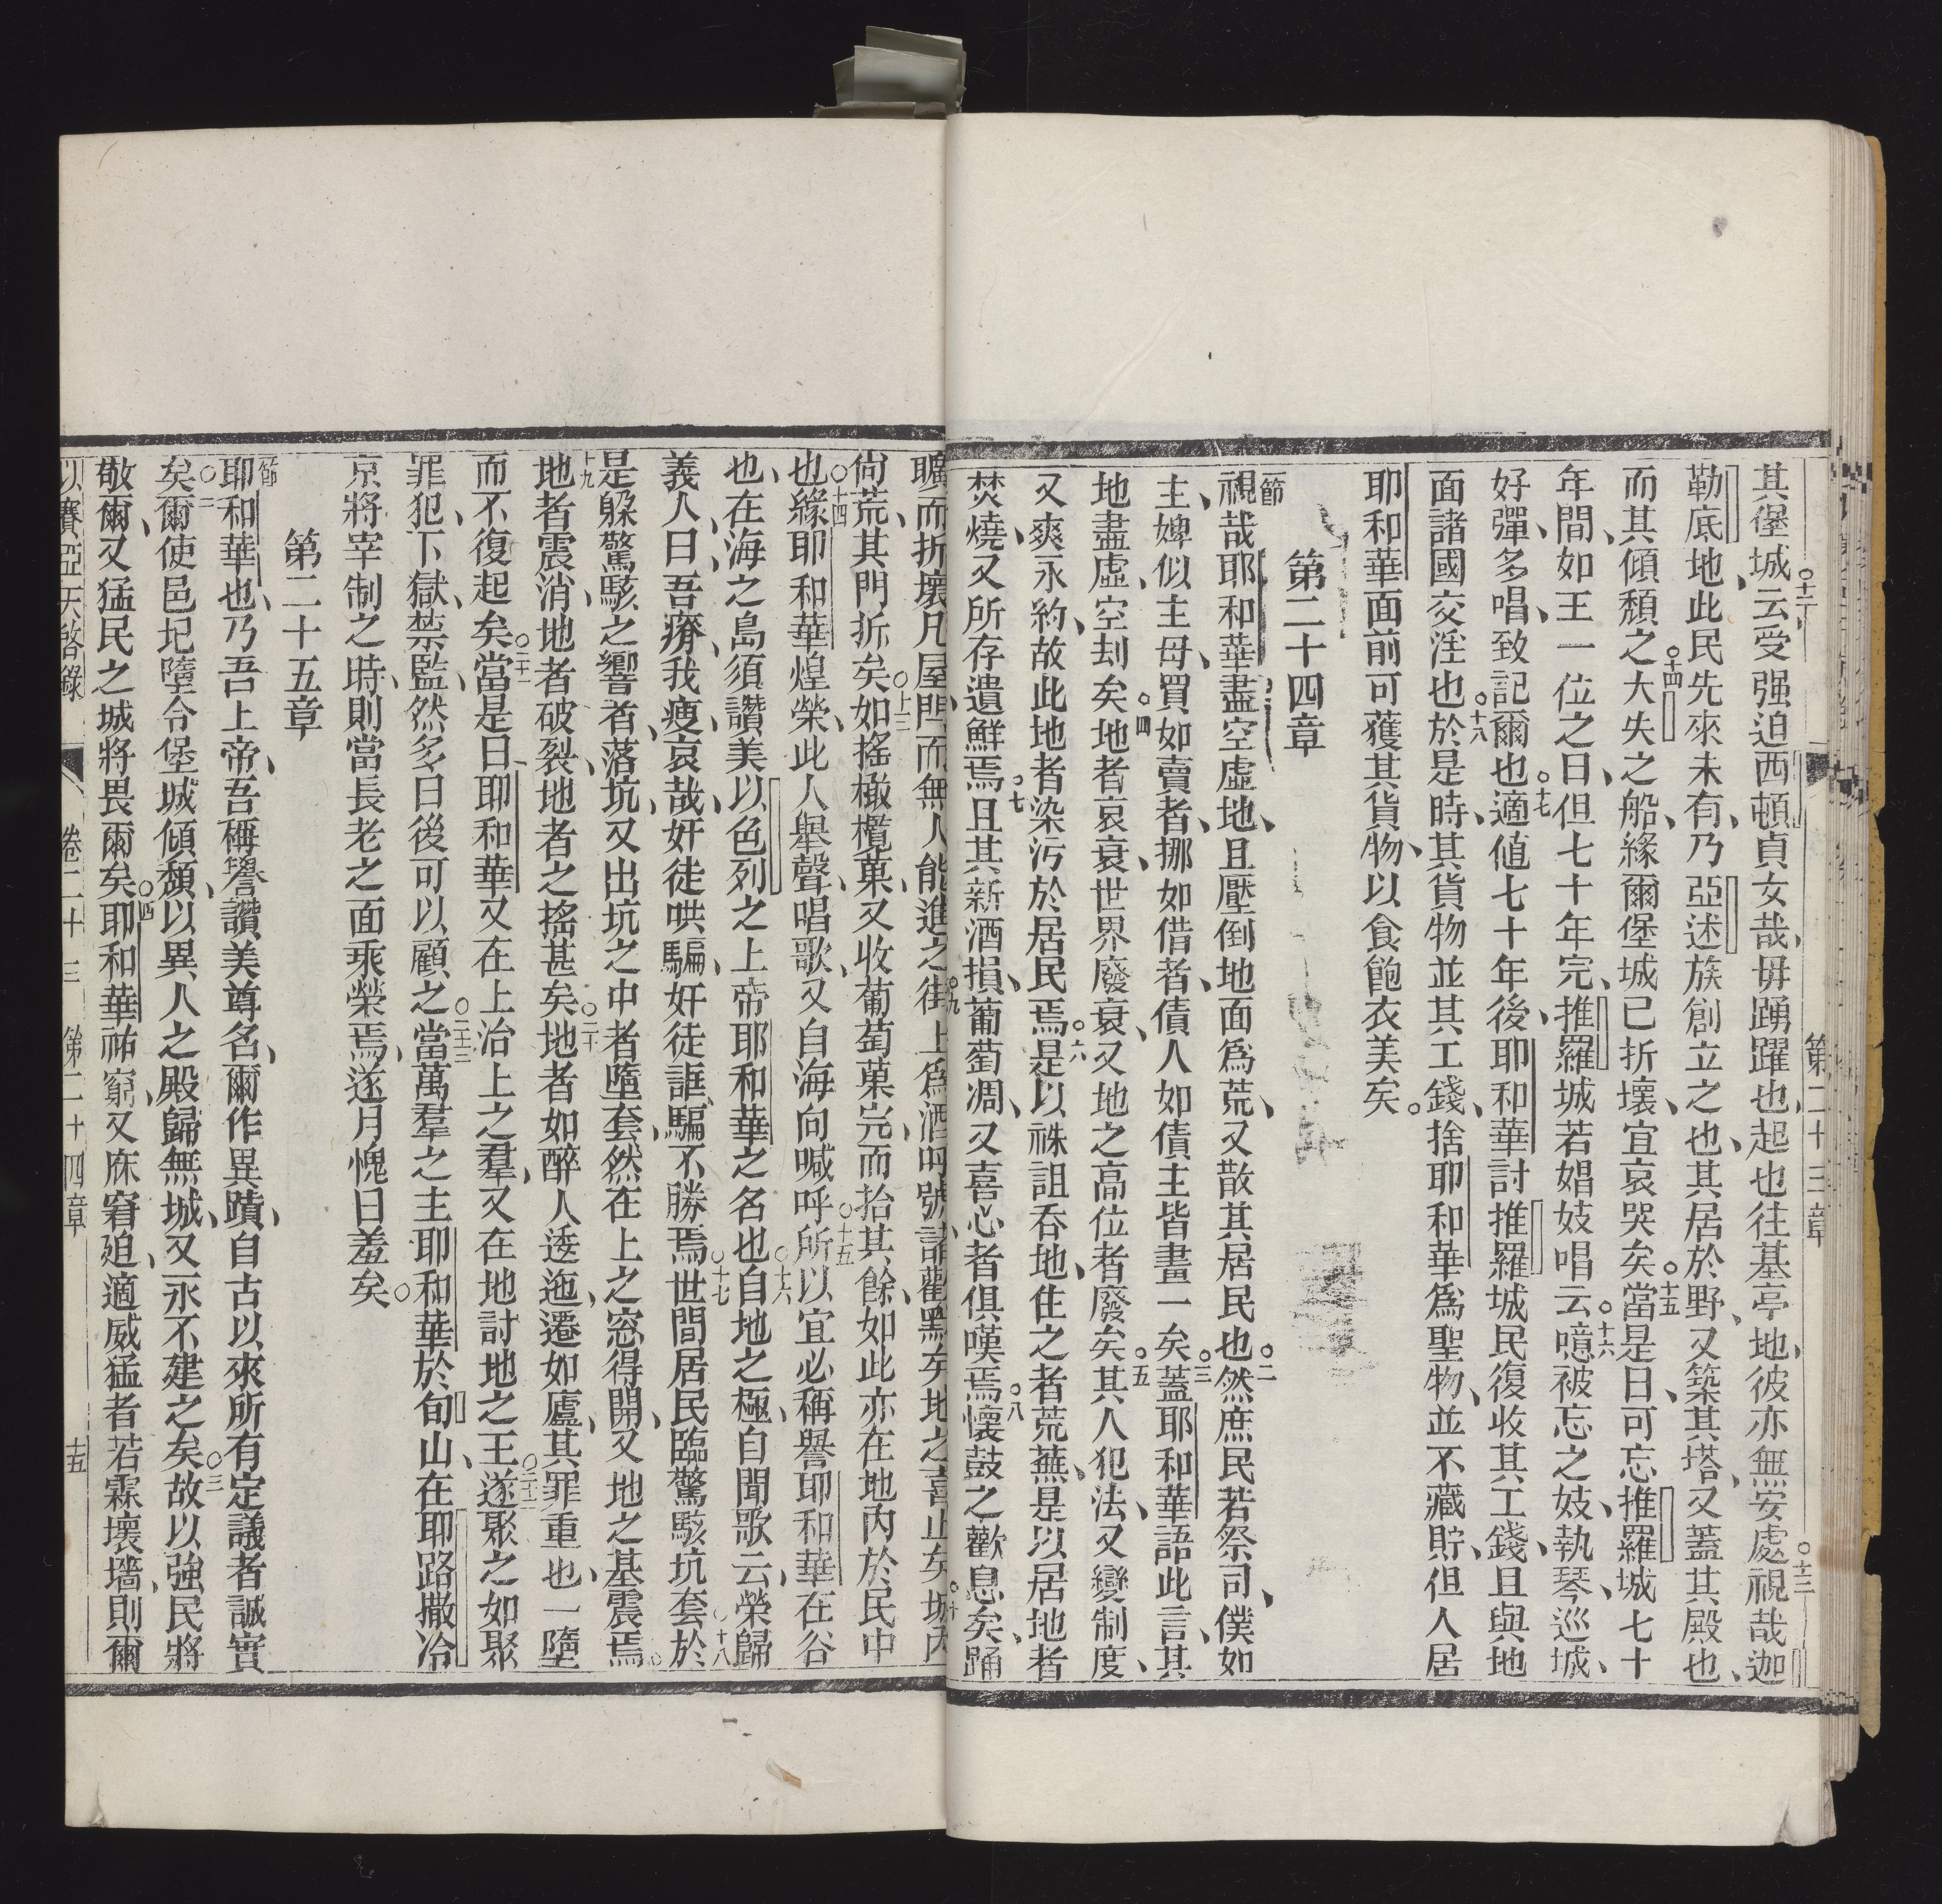 第二十三章
其堡城云受强迫西頓貞女哉毋踴躍也起也往基亭地彼亦無安處視哉迦
勒底地此民先來未有乃亞述族創立之也其居於野又築其塔又蓋其殿也
而其傾頹之大失之船緣爾堡城已折壞宜哀哭矣當是日可忘推羅城七十
年間如王一位之日但七十年完推羅城若娼妓唱云噫被忘之妓執琴巡城
好彈多唱致記爾也適値七十年後耶和華討推羅城民復收其工錢且與地
面諸國交淫也於是時其貨物並其工錢捨耶和華爲聖物並不藏貯但人居
耶和華面前可獲其貨物以食飽衣美矣
第二十四章
一節視哉耶和華盡空虛地且壓倒地面爲荒又散其居民也二然庶民若祭司僕如
主婢似主母買如賣者挪如借者債人如債主皆畫一矣三蓋耶和華語此言其
地盡虛空刦矣四地者哀衰世界廢衰又地之高位者廢矣五其人犯法又變制度
又爽永約故此地者染污於居民焉六是以袾詛吞地住之者荒蕪是以居地者
焚燒又所存遺鮮焉七且其新酒損葡萄凋又喜心者俱嘆焉八懷鼓之歡息矣踊
曠而折壞凡屋門而無人能進之街上爲酒呼號諸歡黙矣地之喜止矣城內
尙荒其門折矣十三如搖橄欖菓又收葡萄菓完而拾其餘如此亦在地內於民中
也十四緣耶和華煌榮此人舉聲唱歌又自海向喊呼十五所以宜必稱譽耶和華在谷
也在海之島須讚美以色列之上帝耶和華之名也十六自地之極自聞歌云榮歸
義人曰吾瘠我瘦哀哉奸徒哄騙奸徒誆騙不勝焉十七世間居民臨驚駭坑套於十八
是躱驚駭之響者落坑又出坑之中者墮套然在上之窓得開又地之基震焉
十九地者震消地者破裂地者之搖甚矣二十地者如醉人逶迤遷如廬其罪重也一墮
而不復起矣二十一當是日耶和華又在上治上之羣又在地討地之王二十二遂聚之如聚
罪犯下獄禁監然多日後可以顧之二十三當萬羣之主耶和華於旬山在耶路撒冷
京將宰制之時則當長老之面乘榮焉遂月愧日羞矣
第二十五章
一節耶和華也乃吾上帝吾稱譽讚美尊名爾作異蹟自古以來所有定議者誠實
矣二爾使邑圮墮令堡城傾頹以異人之殿歸無城又永不建之矣三故以強民將
敬爾又猛民之城將畏爾矣四耶和華祐窮又庥窘廹適威猛者若霖壞墻則爾
以賽亞天啓錄 卷二十三 第二十四章 十五